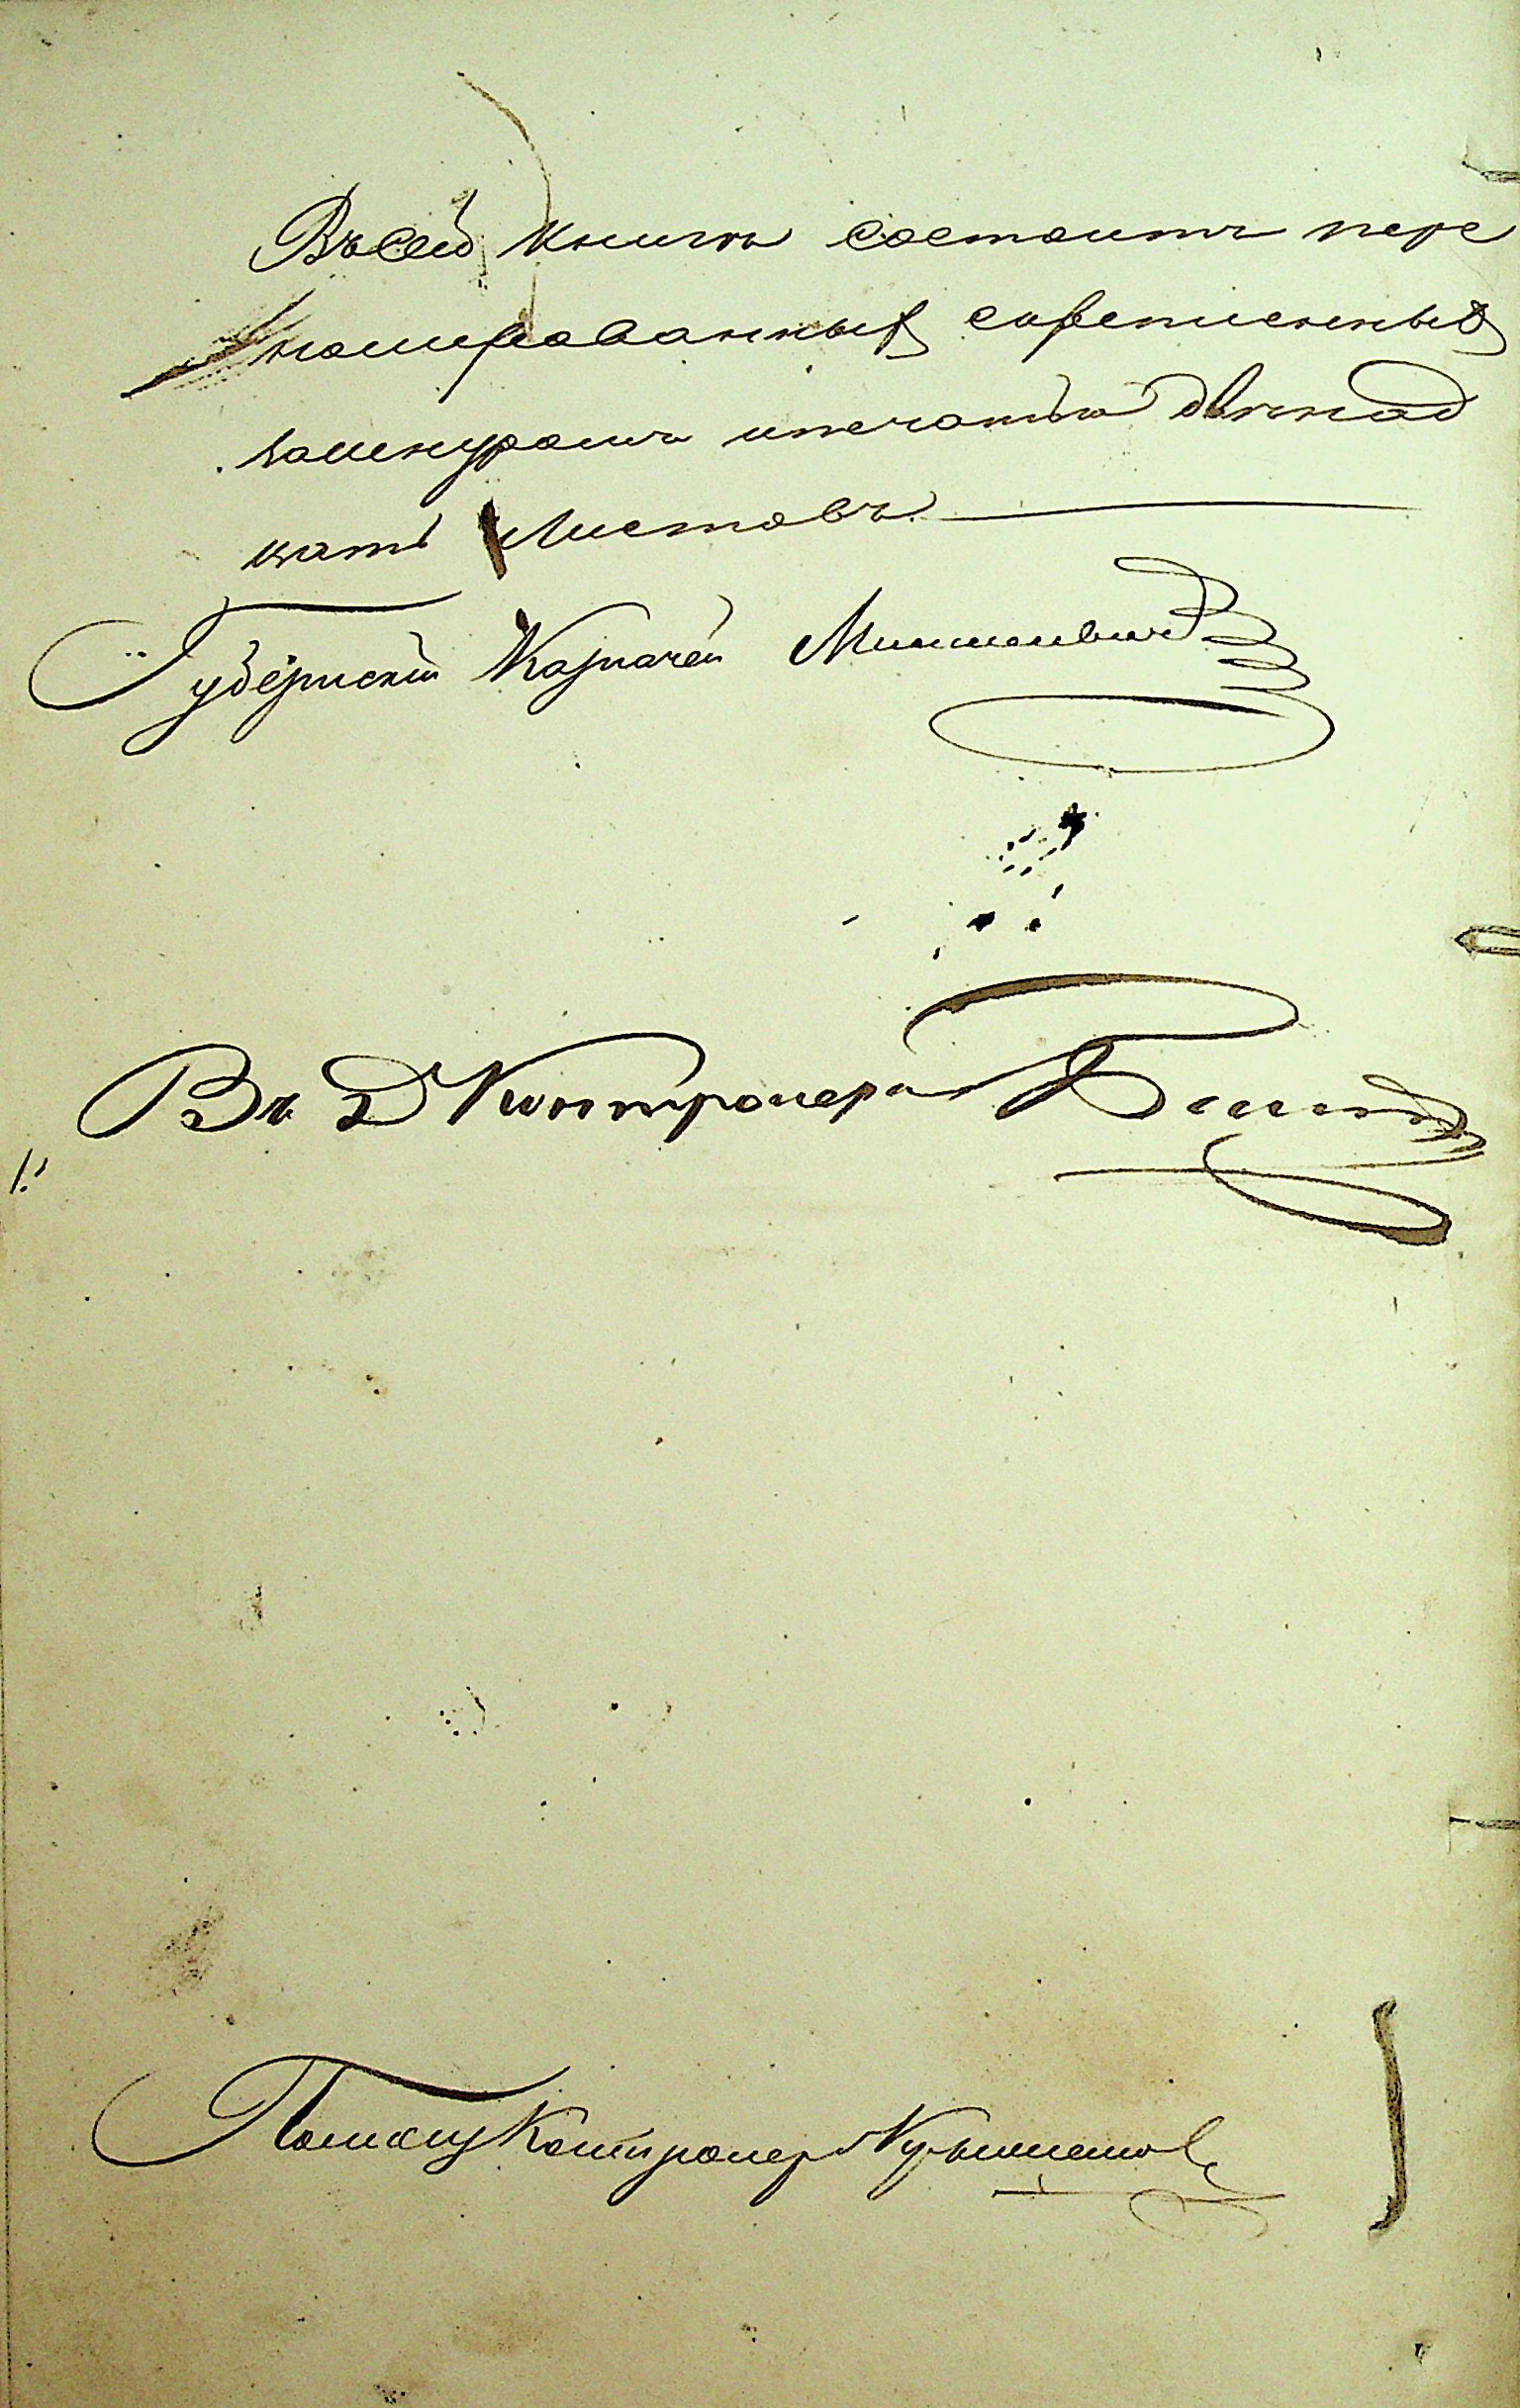 Въ сей книгѣ состоитъ пере
номированныхъ скрепленныхъ
зашнуромъ ипечатью двѣнад
цать Листовъ.
Губернскій Казначей
Въ Д Контролера
Помощ Контролер